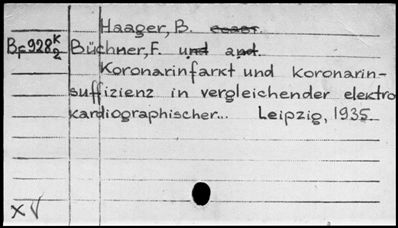 Haager, B.
BF 928 K/2 Büchner, F. und and.
Koronarinfarkt und koronarin-
suffizienz in vergleichender elektro
kardiographischer... Leipzig, 1935